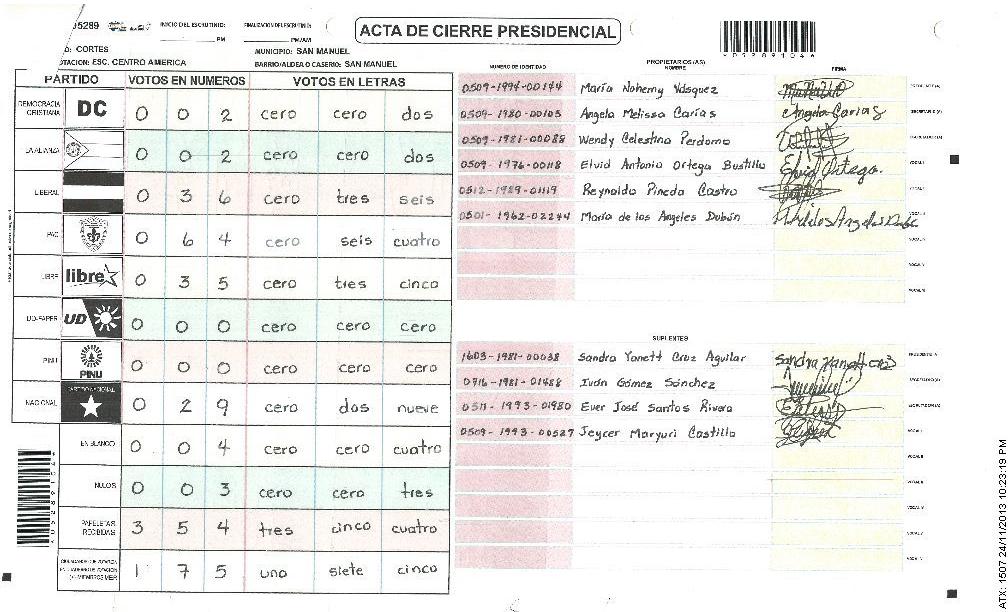 05289 INICIO DEL ESCRUTINIO: FINALIZACION DEL ESCRUTINIO:
PM PM/AM
ACTA DE CIERRE PRESIDENCIAL
O: CORTES MUNICIPIO: SAN MANUEL
OTACION: ESC. CENTRO AMERICA BARRIO/ALDEA O CASERIO: SAN MANUEL
PARTIDO VOTOS EN NUMEROS VOTOS EN LETRAS
DEMOCRACIA CRISTIANA DC 0 0 2 cero cero dos
LA ALIANZA 0 0 2 cero cero dos
LIBERAL 0 3 6 cero tres seis
PAC 0 6 4 cero seis cuatro
LIBRE libre 0 3 5 cero tres cinco
UD-FAPER UD 0 0 0 cero cero cero
PINU PINU 0 0 0 cero cero cero
NACIONAL PARTIDO NACIONAL 0 2 9 cero dos nueve
EN BLANCO 0 0 4 cero cero cuatro
NULOS 0 0 3 cero cero tres
PAPELETAS RECIBIDAS 3 5 4 tres cinco cuatro
1 7 5 uno siete cinco
NUMERO DE IDENTIDAD PROPIETARIOS (AS) NOMBRE FIRMA
0509-1994-00144 María Nohemy Vásquez PRESIDENTE (A)
0509-1980-00105 Angela Melissa Carías Angela Carías SECRETARIO (A)
0509-1981-00088 Wendy Celestina Perdomo ESCRUTADOR (A)
0509-1976-00118 Elvid Antonio Ortega Bustillo Elvid Ortega. VOCAL I
0512-1989-01119 Reynaldo Pineda Castro VOCAL II
0501-1962-02244 María de los Angeles Dubón VOCAL III
VOCAL IV
VOCAL V
VOCAL VI
SUPLENTES
1603-1981-00038 Sandra Yanett Cruz Aguilar PRESIDENTE (A)
0716-1981-01488 Iván Gómez Sánchez SECRETARIO (A)
0511-1993-01980 Ever José Santos Rivera ESCRUTADOR (A)
0509-1993-00527 Jeycer Maryuri Castillo VOCAL I
VOCAL II
VOCAL III
VOCAL IV
VOCAL V
VOCAL VI
ATX: 1507 24/11/2013 10:23:19 PM